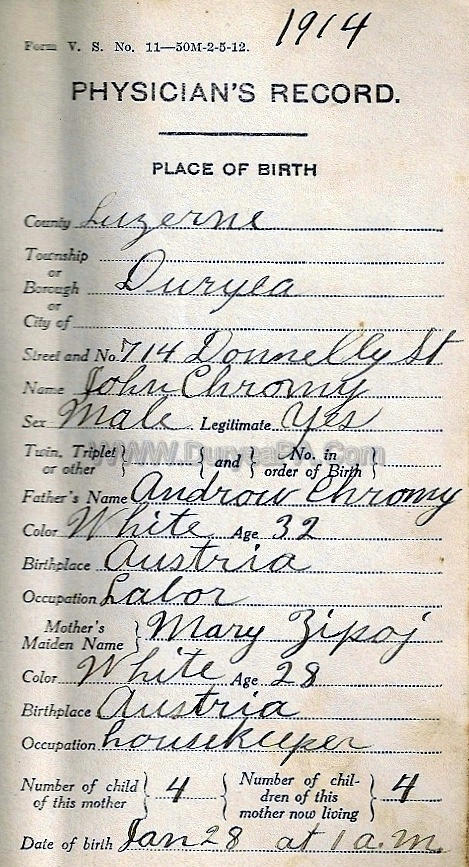 1914
Form V. S. No. 11—50M-2-5-12.
PHYSICIAN'S RECORD.
PLACE OF BIRTH
County Luzerne
Township
or
Borough Duryea
or
City of
Street and No. 714 Donnelly St
Name John Chromy
Sex Male Legitimate Yes
WWW.DuryeaPA.Com
Twin, Triplet or other } { and } No. in order of Birth }
Father's Name Androw Chromy
Color White Age 32
Birthplace Austria
Occupation Labor
Mother's Maiden Name } Mary Zipoj
Color White Age 28
Birthplace Austria
Occupation housekeeper
Number of child of this mother } 4 { Number of children of this mother now living } 4
Date of birth Jan 28 at 1 a.m.